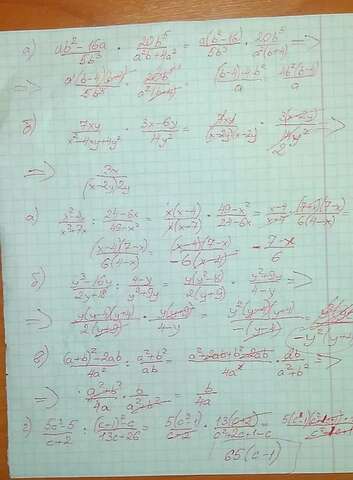 а) ab²-16a/5b³ · 20b⁵/a²b+4a² = a(b²-16)/5b³ · 20b⁵/a²(b+4) ⇒
⇒ a(b-4)(b+4)/5b³ · 20b⁵/a²(b+4) (b-4)·4b²/a 4b²(b-4)/a
б) 7xy/x²-4xy+4y² · 3x-6y/4y² = 7xy/(x-2y)(x-2y) · 3(x-2y)/4y² ⇒
⇒ /(x-2y)2y
а) : 24-6x/49-x² = x(x-4)/x(x+7) · 49-x²/24-6x = x-4/x+7 · (7+x)(7-x)/6(4-x)
(x-4)(7-x)/6(4-x) = (x-4)(7-x)/-6(x-4) = -7-x/6
б) y³-16y/2y+18 : 4-y/y²+9y = y(y²-16)/2(y+9) · y²+9y/4-y ⇒
⇒ y(y-4)(y+4)/2(y+9) · y(y+9)/4-y = y²(y-4)(y+4)/-(y-4)
в) (a+b)²-2ab/4a² : a²+b²/ab = a²+2ab+b²-2ab/4a² · ab/a²+b² ⇒
⇒ a²+b²/4a · b/a²+b² = b/4a
з) 5c²-5/c+2 : (c-1)²-c/13c+26 = 5(c²-1)/c+2 · 13(c+2)/c²+2c+1-c
65(c-1)